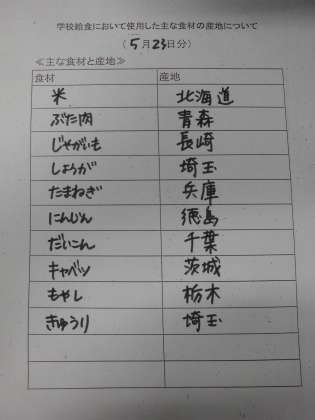 学校給食において使用した主な食材の産地について
(5月23日分)
≪主な食材と産地≫
食材 産地
米 北海道
ぶた肉 青森
じゃがいも 長崎
しょうが 埼玉
たまねぎ 兵庫
にんじん 徳島
だいこん 千葉
キャベツ 茨城
もやし 栃木
きゅうり 埼玉